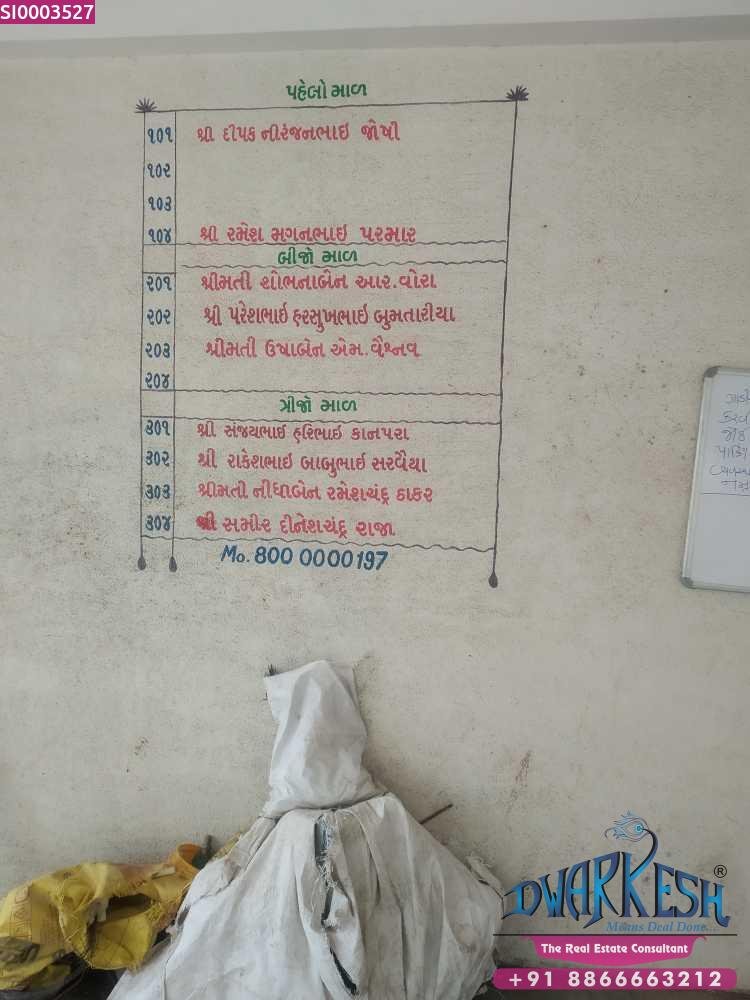 SI0003527
પહેલો માળ
૧૦૧ શ્રી દીપક નીરંજનભાઇ જોષી
૧૦૨
૧૦૩
૧૦૪ શ્રી રમેશ મગનભાઇ પરમાર
બીજો માળ
૨૦૧ શ્રીમતી શોભનાબેન આર.વોરા
૨૦૨ શ્રી પરેશભાઇ હરસુખભાઇ બુમતારીયા
૨૦૩ શ્રીમતી ઉષાબેન એમ.વૈશ્નવ
૨૦૪
ત્રીજો માળ
૩૦૧ શ્રી સંજયભાઇ હરિભાઇ કાનપરા
૩૦૨ શ્રી રાકેશભાઇ બાબુભાઇ સરવૈયા
૩૦૩ શ્રીમતી નીધાબેન રમેશચંદ્ર ઠાકર
૩૦૪ શ્રી સમીર દીનેશચંદ્ર રાજા
Mo. 800 0000197
DWARKESH®
Means Deal Done...
The Real Estate Consultant
+91 8866663212